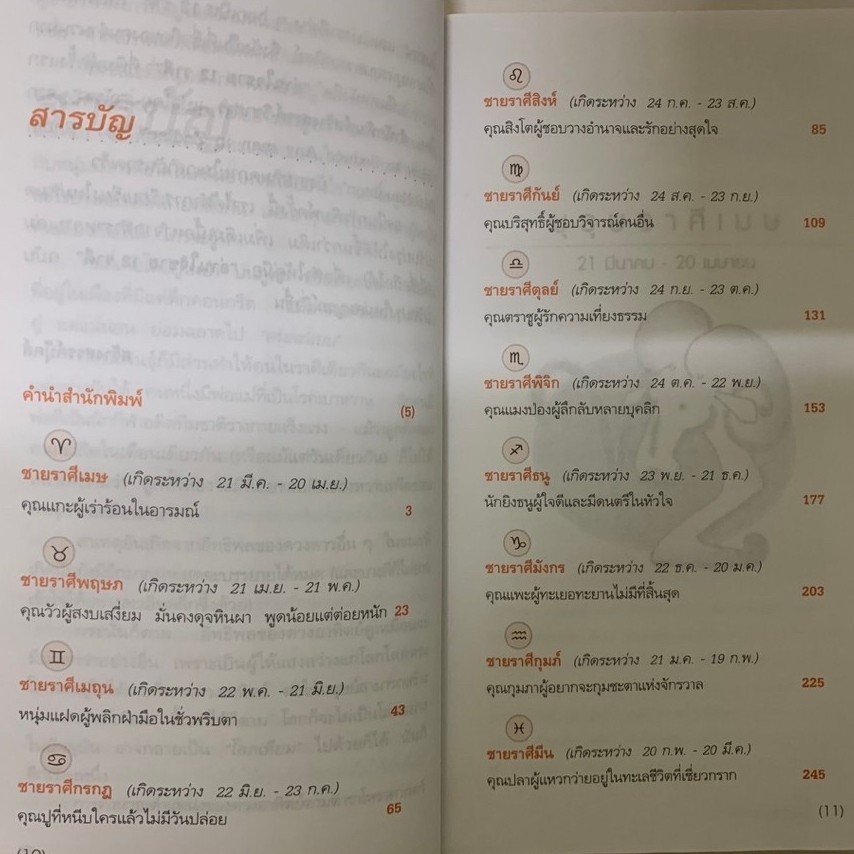 สารบัญ
คำนำสำนักพิมพ์ (5)
ชายราศีเมษ (เกิดระหว่าง 21 มี.ค. - 20 เม.ย.)
คุณแกะผู้เร่าร้อนในอารมณ์ 3
ชายราศีพฤษภ (เกิดระหว่าง 21 เม.ย. - 21 พ.ค.)
คุณวัวผู้สงบเสงี่ยม มั่นคงดุจหินผา พูดน้อยแต่ต่อยหนัก 23
ชายราศีเมถุน (เกิดระหว่าง 22 พ.ค. - 21 มิ.ย.)
หนุ่มแฝดผู้พลิกฝ่ามือในชั่วพริบตา 43
ชายราศีกรกฎ (เกิดระหว่าง 22 มิ.ย. - 23 ก.ค.)
คุณปูที่หนีบใครแล้วไม่มีวันปล่อย 65
(10)
ชายราศีสิงห์ (เกิดระหว่าง 24 ก.ค. - 23 ส.ค.)
คุณสิงโตผู้ชอบวางอำนาจและรักอย่างสุดใจ 85
ชายราศีกันย์ (เกิดระหว่าง 24 ส.ค. - 23 ก.ย.)
คุณบริสุทธิ์ผู้ชอบวิจารณ์คนอื่น 109
ชายราศีตุลย์ (เกิดระหว่าง 24 ก.ย. - 23 ต.ค.)
คุณตราชูผู้รักความเที่ยงธรรม 131
ชายราศีพิจิก (เกิดระหว่าง 24 ต.ค. - 22 พ.ย.)
คุณแมงป่องผู้ลึกลับหลายบุคลิก 153
ชายราศีธนู (เกิดระหว่าง 23 พ.ย. - 21 ธ.ค.)
นักยิงธนูผู้ใจดีและมีดนตรีในหัวใจ 177
ชายราศีมังกร (เกิดระหว่าง 22 ธ.ค. - 20 ม.ค.)
คุณแพะผู้ทะเยอทะยานไม่มีที่สิ้นสุด 203
ชายราศีกุมภ์ (เกิดระหว่าง 21 ม.ค. - 19 ก.พ.)
คุณกุมภาผู้อยากจะกุมชะตาแห่งจักรวาล 225
ชายราศีมีน (เกิดระหว่าง 20 ก.พ. - 20 มี.ค.)
คุณปลาผู้แหวกว่ายอยู่ในทะเลชีวิตที่เชี่ยวกราก 245
(11)